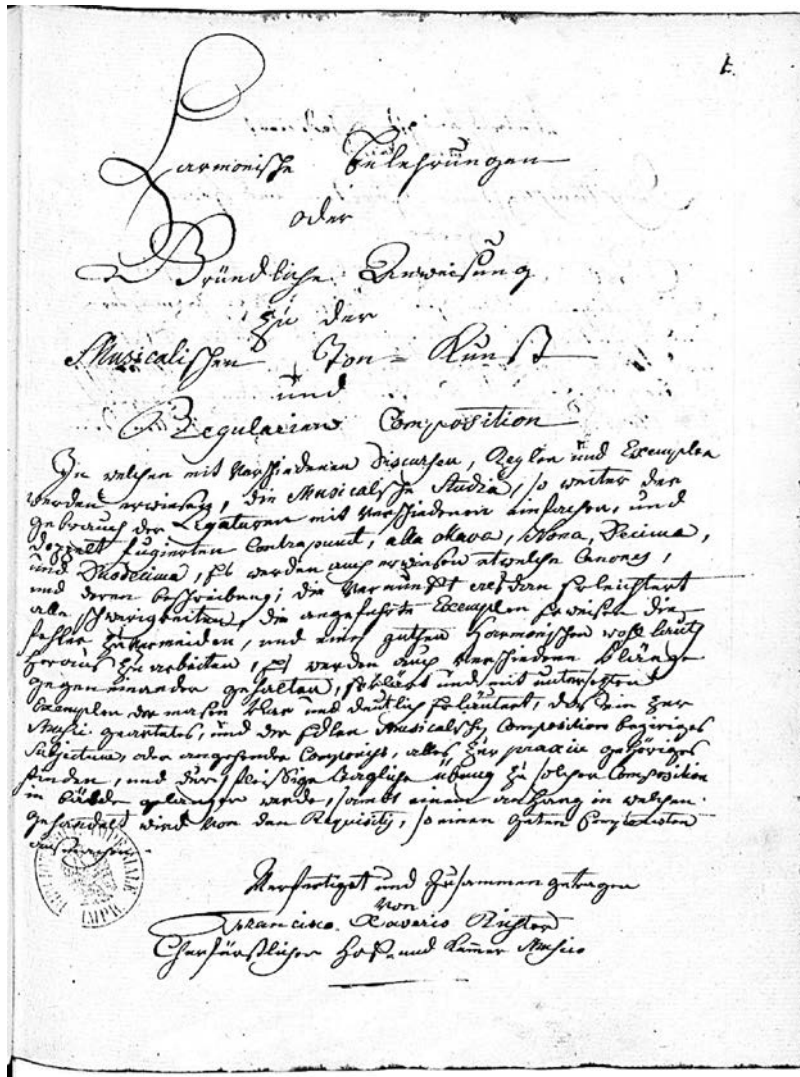 1.
Harmonische Belehrungen
oder
Gründliche Anweisung
zu der
Musicalischen Ton= Kunst
und
Regularien Composition
In welchen mit Verschiedenen Discursen, Reglen und Exemplen
werden erwiesen, die Musicalische Studia, so weiter der
gebrauch der Ligaturen mit Verschiedenen einfachen, und
doppelt fugierten Contrapunct, alla ottava, Nona, Decima,
und Duodecima, Es werden auch erwiesen etwelche Canones,
und deren beschreibung; die Vernunfft als dan Erleichtert
alle schwerigkeiten, die angeführte Exemplen Erweisen die
fehler zu vermeiden, und einen guthen Harmonischen wohl laut
heraus zu arbeiten, Es werden auch Verschiedene Klänge
gegen einander gehalten, Erklärt und mit untersetzten
Exemplen der masen klar und deutlich Erläutert, das ein zur
Music geartetes, und der Edlen Musicalischen Composition begieriges
Subjectum, oder angehender Componist, alles zur praxin gehöriges
finden, und durch fleissige tägliche übung zu solcher Composition
in bälde gelangen werde, sambt einem anhang in welchen
gehandelt wird von den Requisitis, so einen guten Componisten
ausmachen.
Verfertiget und zusammen getragen
von
Francisco Xaverio Richter
Churfürstlicher Hof- und Kammer Musico
IMPR